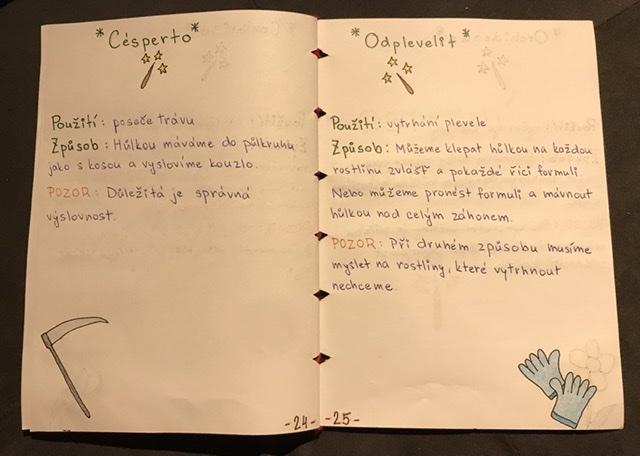 *Césperto*
Použití: poseče trávu
Způsob: Hůlkou máváme do půlkruhu
jako s kosou a vyslovíme kouzlo.
POZOR: Důležitá je správná
výslovnost.
-24-
*Odplevelit*
Použití: vytrhání plevele
Způsob: Můžeme klepat hůlkou na každou
rostlinu zvlášť a pokaždé říci formuli
Nebo můžeme pronést formuli a mávnout
hůlkou nad celým záhonem.
POZOR: Při druhém způsobu musíme
myslet na rostliny, které vytrhnout
nechceme.
-25-